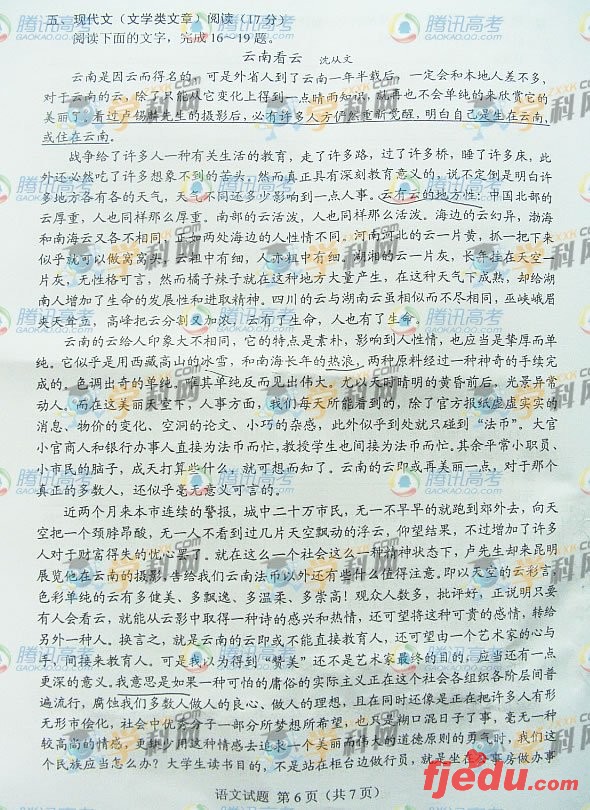 五、现代文（文学类文章）阅读（17分）
阅读下面的文字，完成16～19题。
云南看云 沈从文
云南是因云而得名的，可是外省人到了云南一年半载后，一定会和本地人差不多，
对于云南的云，除了只能从它变化上得到一点晴雨知识，就再也不会单纯的来欣赏它的
美丽了。看过卢锡麟先生的摄影后，必有许多人方俨然重新觉醒，明白自己是生在云南，
或住在云南。
战争给了许多人一种有关生活的教育，走了许多路，过了许多桥，睡了许多床，此
外还必然吃了许多想象不到的苦头。然而真正具有深刻教育意义的，说不定倒是明白许
多地方各有各的天气，天气不同还多少影响到一点人事。云有云的地方性：中国北部的
云厚重，人也同样那么厚重。南部的云活泼，人也同样那么活泼。海边的云幻异，渤海
和南海云又各不相同，正如两处海边的人性情不同。河南河北的云一片黄，抓一把下来
似乎就可以做窝窝头，云粗中有细，人亦粗中有细。湖湘的云一片灰，长年挂在天空一
片灰，无性格可言，然而橘子辣子就在这种地方大量产生，在这种天气下成熟，却给湖
南人增加了生命的发展性和进取精神。四川的云与湖南云虽相似而不尽相同，巫峡峨眉
夹天耸立，高峰把云分割又加浓，云有了生命，人也有了生命。
云南的云给人印象大不相同，它的特点是素朴，影响到人性情，也应当是挚厚而单
纯。它似乎是用西藏高山的冰雪，和南海长年的热浪，两种原料经过一种神奇的手续完
成的。色调出奇的单纯。唯其单纯反而见出伟大。尤以天时晴明的黄昏前后，光景异常
动人。而在这美丽天空下，人事方面，我们每天所能看到的，除了官方报纸虚虚实实的
消息、物价的变化、空洞的论文、小巧的杂感，此外似乎到处就只碰到“法币”。大官
小官商人和银行办事人直接为法币而忙，教授学生也间接为法币而忙。其余平常小职员、
小市民的脑子，成天打算些什么，就可想而知了。云南的云即或再美丽一点，对于那个
真正的多数人，还似乎毫无意义可言的。
近两个月来本市连续的警报，城中二十万市民，无一不早早的就跑到郊外去，向天
空把一个颈脖昂酸，无一人不看到过几片天空飘动的浮云，仰望结果，不过增加了许多
人对于财富得失的忧心罢了。就在这么一个社会这么一种精神状态下，卢先生却来昆明
展览他在云南的摄影，告给我们云南法币以外还有些什么值得注意。即以天空的云彩言，
色彩单纯的云有多健美、多飘逸、多温柔、多崇高！观众人数多，批评好，正说明只要
有人会看云，就能从云影中取得一种诗的感兴和热情，还可望将这种可贵的感情，转给
另外一种人。换言之，就是云南的云即或不能直接教育人，还可望由一个艺术家的心与
手，间接来教育人。可是我以为得到“赞美”还不是艺术家最终的目的，应当还有一点
更深的意义。我意思是如果一种可怕的庸俗的实际主义正在这个社会各组织各阶层间普
遍流行，腐蚀我们多数人做人的良心、做人的理想，且在同时还像是正在把许多人有形
无形市侩化，社会中优秀分子一部分所梦想所希望，也只是糊口混日子了事，毫无一种
较高尚的情感，更缺少用这种情感去追求一个美丽而伟大的道德原则的勇气时，我们这
个民族应当怎么办？大学生读书目的，不是站在柜台边做行员，就是坐在公事房做办事
语文试题 第6页（共7页）
腾讯高考
GAOKAO.QQ.COM
学科网
ZXXK.com
fjedu.com